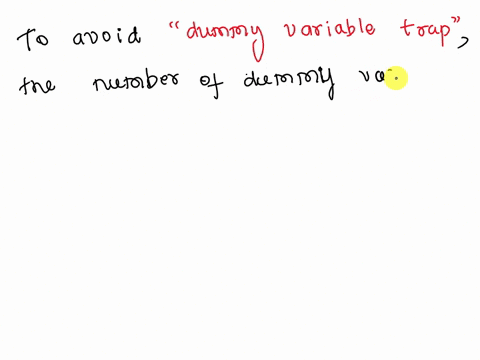 To avoid "dummy variable trap",
the number of dummy va